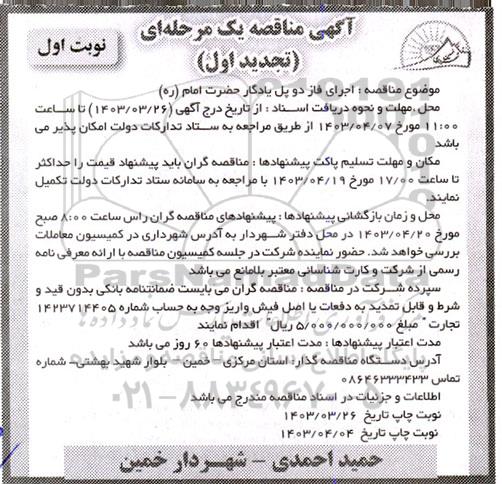 آگهی مناقصه یک مرحله‌ای
(تجدید اول)
نوبت اول
موضوع مناقصه : اجرای فاز دو پل یادگار حضرت امام (ره)
محل ,مهلت و نحوه دریافت اسناد : از تاریخ درج آگهی (۱۴۰۳/۰۳/۲۶) تا ساعت
۱۱:۰۰ مورخ ۱۴۰۳/۰۴/۰۷ از طریق مراجعه به ستاد تدارکات دولت امکان پذیر می
باشد
مکان و مهلت تسلیم پاکت پیشنهادها : مناقصه گران باید پیشنهاد قیمت را حداکثر
تا ساعت ۱۷/۰۰ مورخ ۱۴۰۳/۰۴/۱۹ با مراجعه به سامانه ستاد تدارکات دولت تکمیل
نمایند.
محل و زمان بازگشائی پیشنهادها : پیشنهادهای مناقصه گران راس ساعت ۸:۰۰ صبح
مورخ ۱۴۰۳/۰۴/۲۰ در محل دفتر شهردار به آدرس شهرداری در کمیسیون معاملات
بررسی خواهد شد. حضور نماینده شرکت در جلسه کمیسیون مناقصه با ارائه معرفی نامه
رسمی از شرکت و کارت شناسائی معتبر بلامانع می باشد
سپرده شرکت در مناقصه : مناقصه گران می بایست ضمانتنامه بانکی بدون قید و
شرط و قابل تمدید به دفعات یا اصل فیش واریز وجه به حساب شماره ۱۴۲۳۷۱۴۴۰۵
تجارت " مبلغ ۵/۰۰۰/۰۰۰/۰۰۰ ریال" اقدام نمایند
مدت اعتبار پیشنهادها : مدت اعتبار پیشنهادها ۶۰ روز می باشد
آدرس دستگاه مناقصه گذار: استان مرکزی – خمین – بلوار شهید بهشتی– شماره
تماس ۰۸۶۴۶۳۳۳۴۳۳
اطلاعات و جزییات در اسناد مناقصه مندرج می باشد
نوبت چاپ تاریخ ۱۴۰۳/۰۳/۲۶
نوبت چاپ تاریخ ۱۴۰۳/۰۴/۰۴
حمید احمدی – شهردار خمین
۰۲۱-۸۸۳۴۹۶۷۰